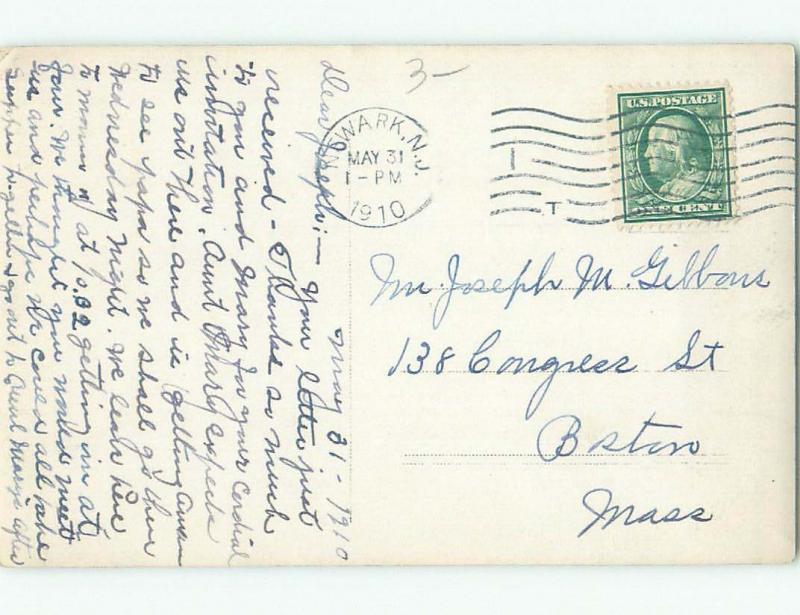 3-
NEWARK, N.J.
MAY 31
1-PM
1910
T
U.S. POSTAGE
ONE CENT
Mr. Joseph M. Gibbons
138 Congress St
Boston
Mass
May 31 - 1910
Dear Joseph: - Your letter just
received - Thanks so much
to you and Mary for your cordial
invitation. Aunt Mary expects
us out there and is getting
to see papa so we shall go there
Wednesday night. We leave here
to morrow at 10.02 getting in at
four. We thought you would meet
us and perhaps we could all take
supper together & go out to Aunt Mary's after